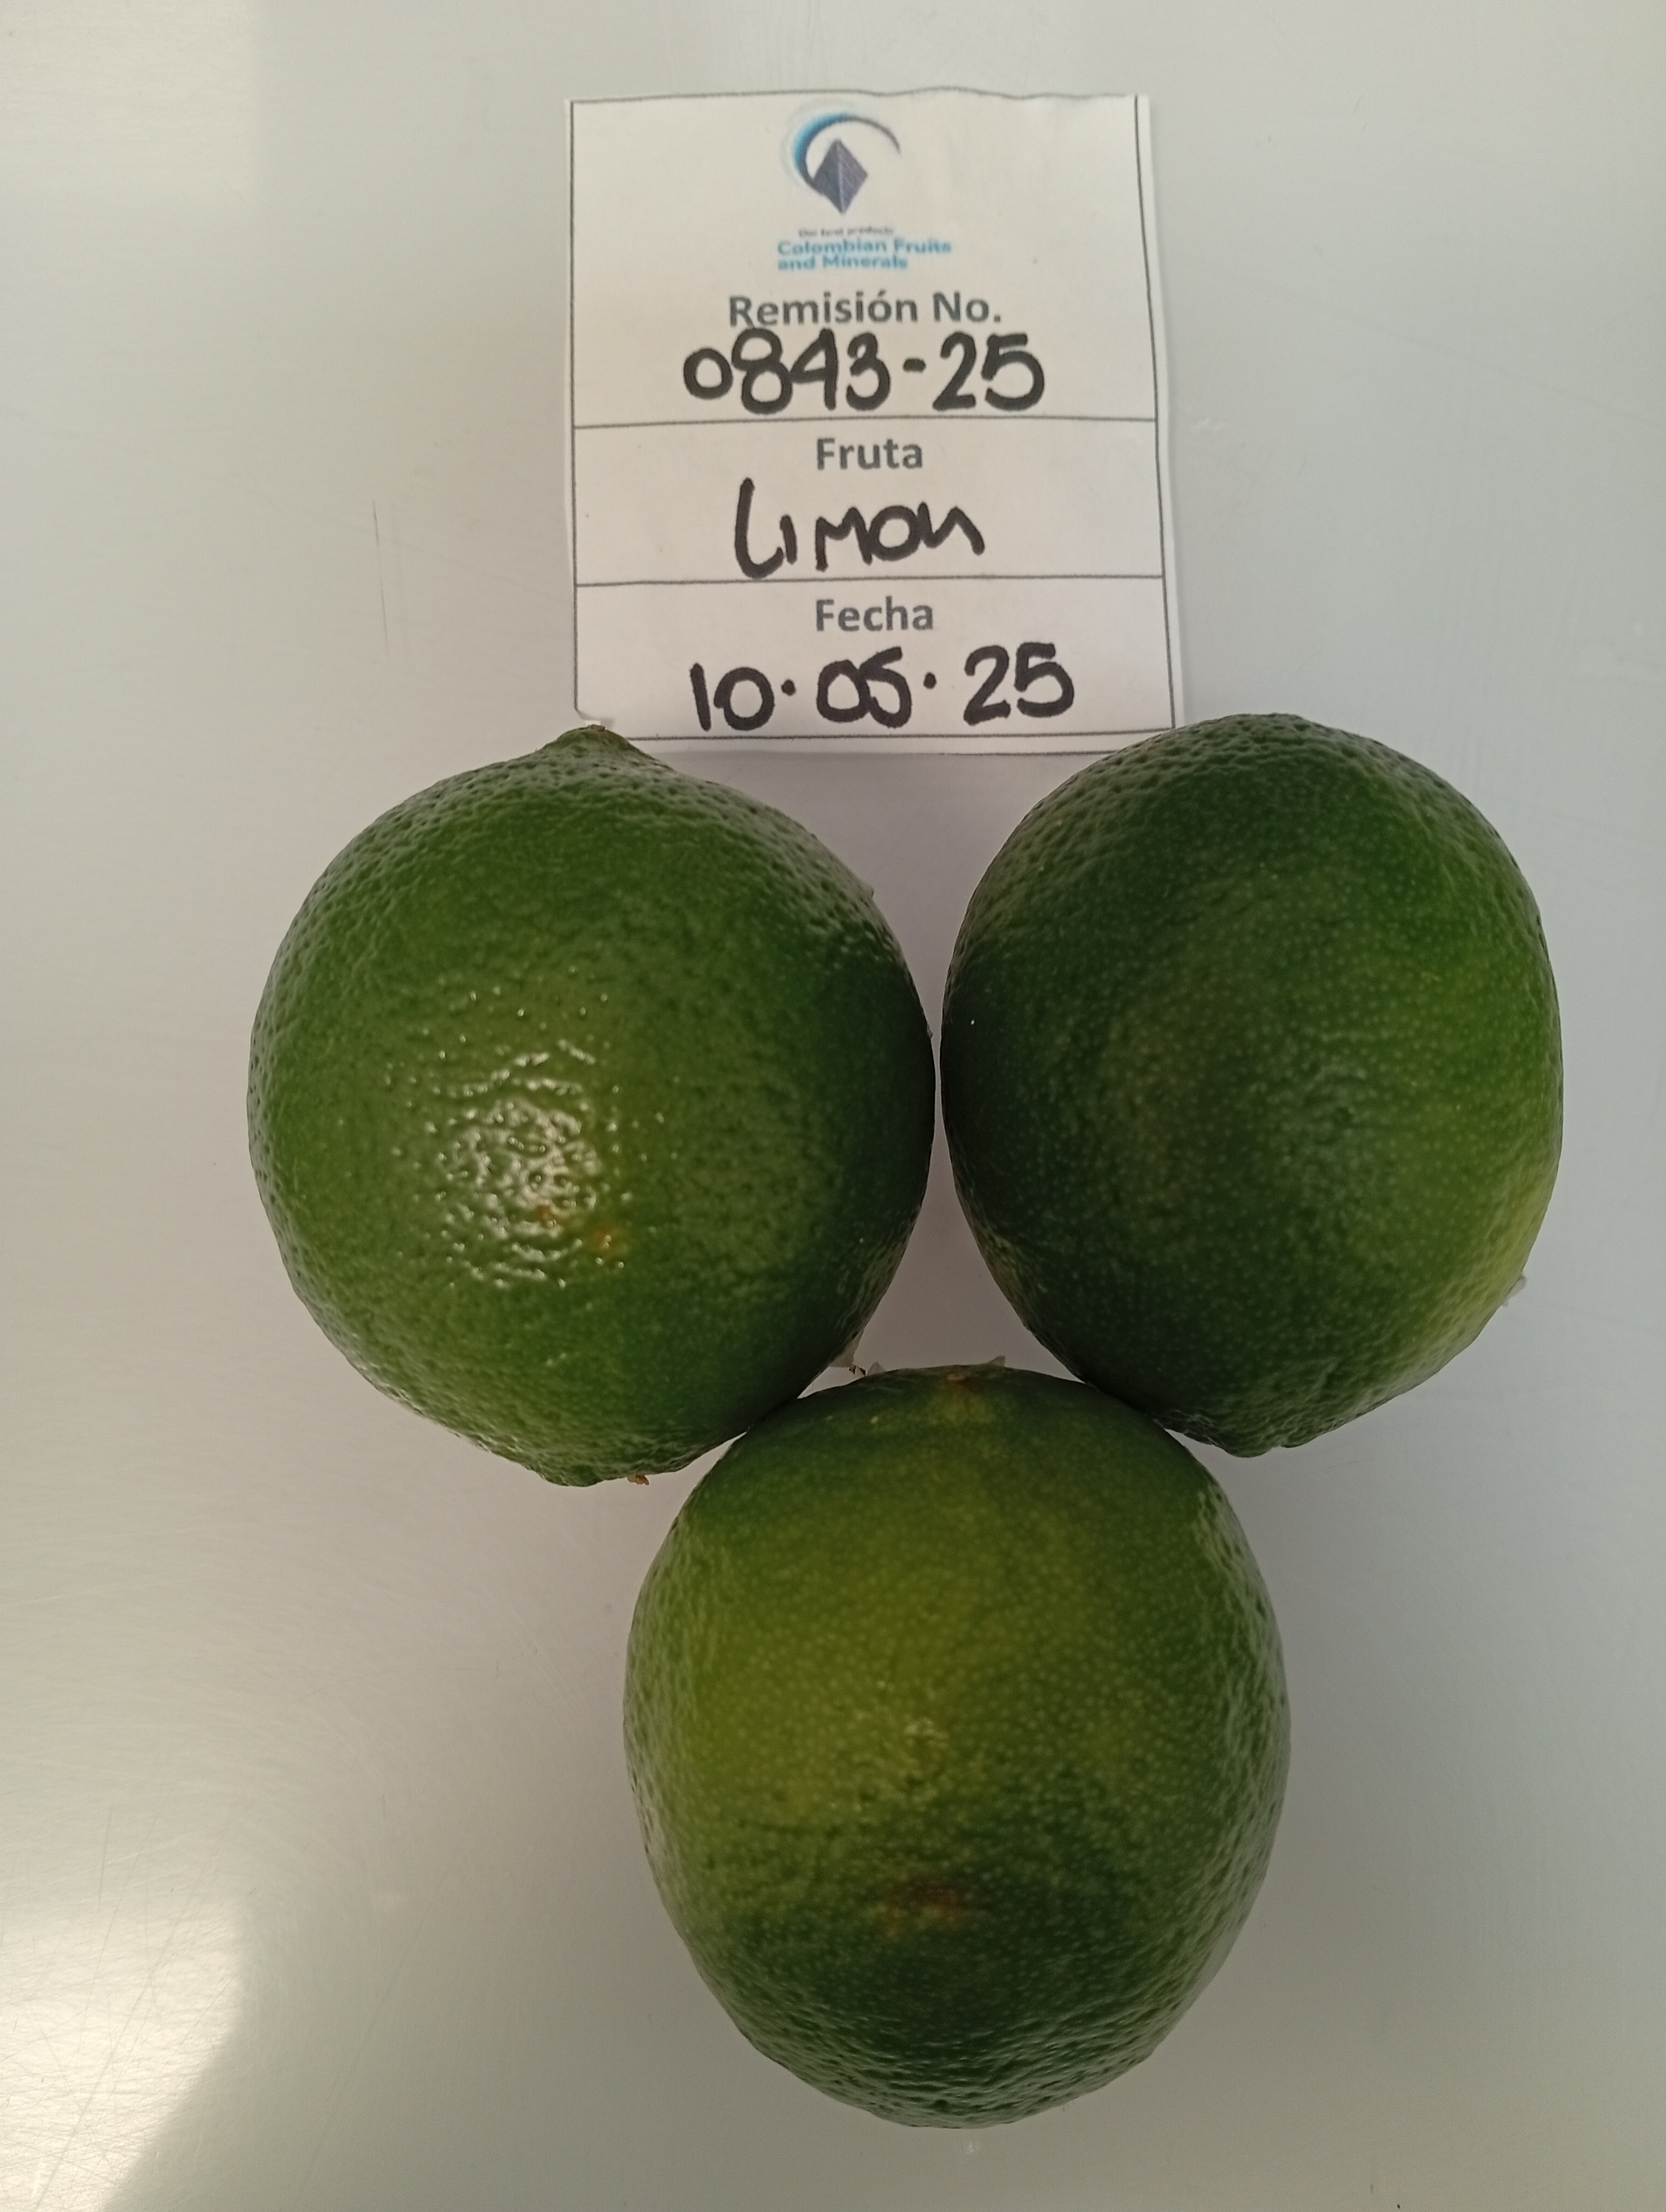 Our best products
Colombian Fruits
and Minerals
Remisión No.
0843-25
Fruta
Limon
Fecha
10.05.25